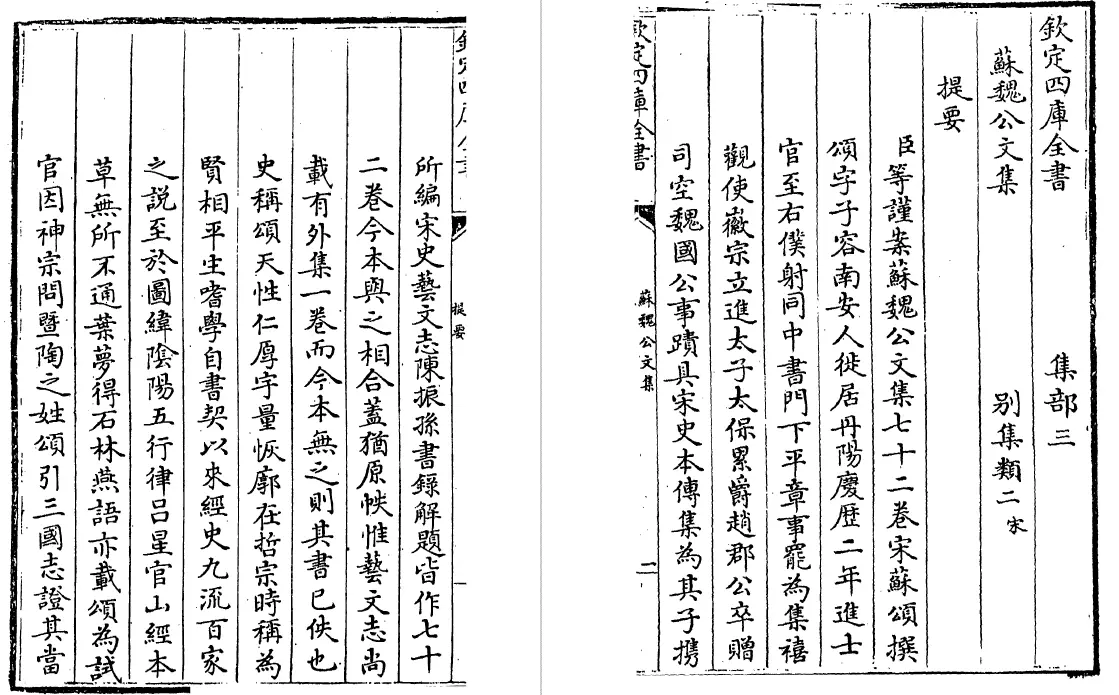 欽定四庫全書 集部三
蘇魏公文集 别集類二宋
提要
臣等謹案蘇魏公文集七十二卷宋蘇頌撰
頌字子容南安人徙居丹陽慶歴二年進士
官至右僕射同中書門下平章事罷為集禧
觀使徽宗立進太子太保累爵趙郡公卒贈
司空魏國公事蹟具宋史本傳集為其子攜
欽定四庫全書 蘇魏公文集 一
欽定四庫全書 提要
所編宋史藝文志陳振孫書錄解題皆作七十
二卷今本與之相合蓋猶原帙惟藝文志尚
載有外集一卷而今本無之則其書已佚也
史稱頌天性仁厚宇量恢廓在哲宗時稱為
賢相平生嗜學自書契以來經史九流百家
之説至於圖緯隂陽五行律吕星官山經本
草無所不通葉夢得石林燕語亦載頌為試
官因神宗問暨陶之姓頌引三國志證其當